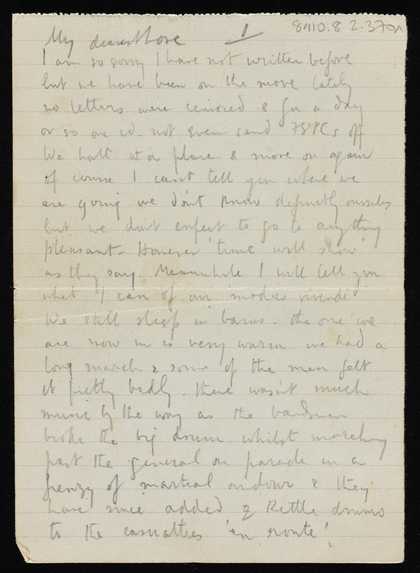 8910.8.2.370A
My dearest love 1
I am so sorry I have not written before
but we have been on the move lately
no letters were censored & for a day
or so one cd not even send FSPCs off
We halt at a place & move on again
of course I can't tell you where we
are going we don't know definitely ourselves
but we don't expect to go to anything
pleasant - However 'time will show'
as they say. Meanwhile I will tell you
what I can of our modus vivendi
We still sleep in barns. the one we
are now in is very warm we had a
long march & some of the men felt
it pretty badly. there wasn't much
music by the way as the bandsman
broke the big drum whilst marching
past the general on parade in a
frenzy of martial ardour & they
have since added 2 Kettle drums
to the casualties 'en route'!